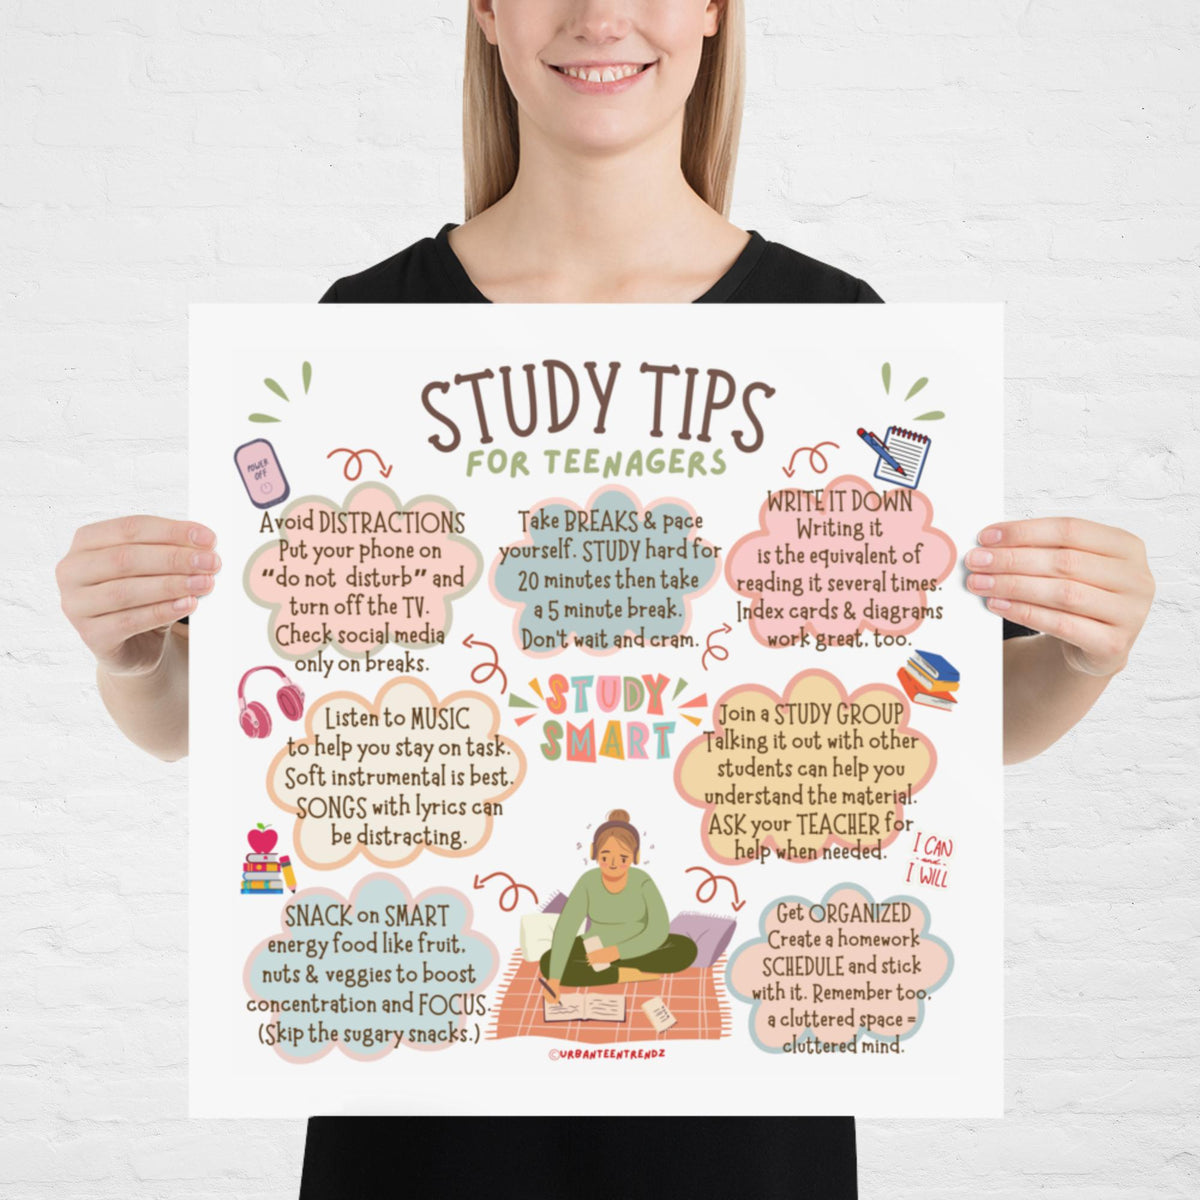 STUDY TIPS
FOR TEENAGERS
POWER
OFF
Avoid DISTRACTIONS
Put your phone on
"do not disturb" and
turn off the TV.
Check social media
only on breaks.
Take BREAKS & pace
yourself. STUDY hard for
20 minutes then take
a 5 minute break.
Don't wait and cram.
WRITE IT DOWN
Writing it
is the equivalent of
reading it several times.
Index cards & diagrams
work great, too.
Listen to MUSIC
to help you stay on task.
Soft instrumental is best.
SONGS with lyrics can
be distracting.
STUDY
SMART
Join a STUDY GROUP
Talking it out with other
students can help you
understand the material.
ASK your TEACHER for
help when needed.
I CAN
and
I WILL
SNACK on SMART
energy food like fruit,
nuts & veggies to boost
concentration and FOCUS.
(Skip the sugary snacks.)
Get ORGANIZED
Create a homework
SCHEDULE and stick
with it. Remember too,
a cluttered space =
cluttered mind.
©URBANTEENTRENDZ